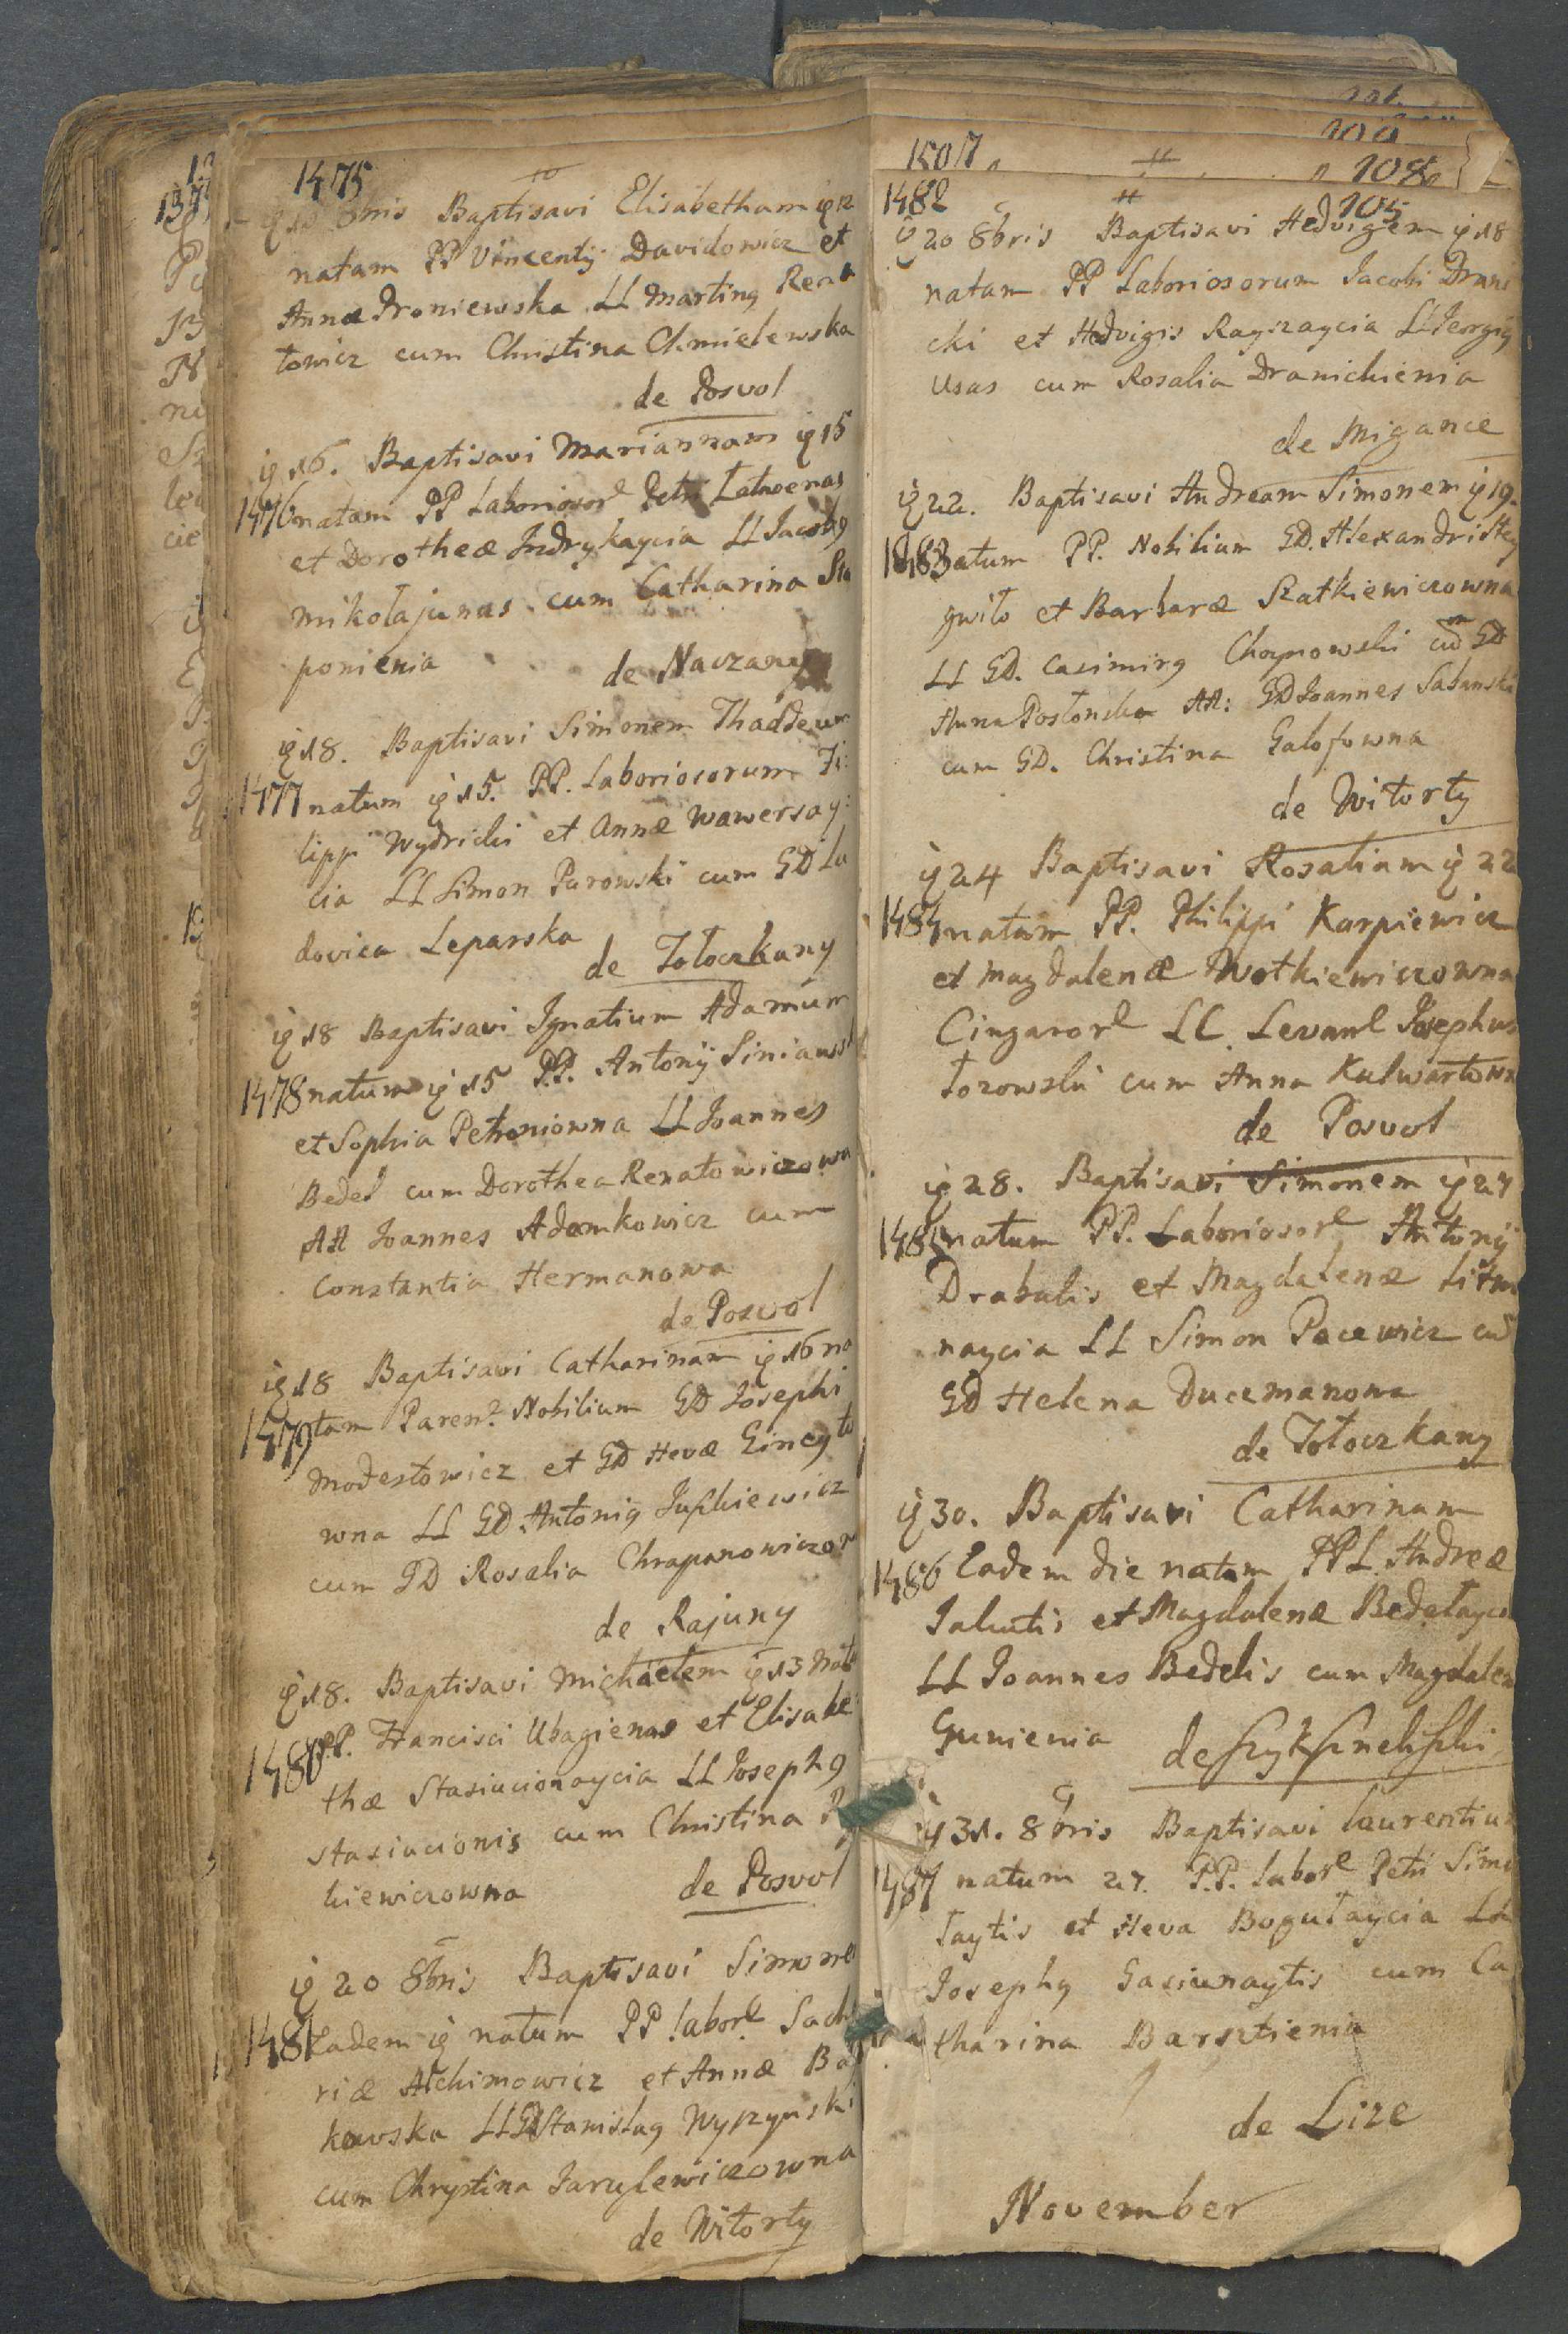 1475
8bris Baptisavi Elisabetham ię 12
natam PP Vincentij Davidowicz et
Annæ Droniewska LL Marting
towicz cum Christina Chmielewska
de Posvol
ię 16. Baptisavi Mariannam ię 15
1476 natam PP Laboriosorl Petri Łatwenas
et Dorotheæ Indrykaycia LL Jacobg
Mikołajunas cum Catharina Sta
ponienia de Naczany
ię 18. Baptisavi Simonem Thaddeum
1477 natum ię 15. PP. Laboriosorum Fi:
lippi Wydricki et Annæ Wawersay:
cia LL Simon Purowski cum GD Lu
dovica Leparska
de Tołoczkany
ię 18 Baptisavi Ignatium Adamum
1478 natum ię 15 P.P. Antonij
et Sophia Petroniowna LL Joannes
Bedel cum Dorothea Renatowiczowa
AA Joannes Adamkowicz cum
Constantia Hermanowa
de Poswol
ię 18 Baptisavi Catharinam ię 16 na
1479 tam Paren? Nobilium GD Josephi
Modestowicz et GD Hevæ Gineyto
wna LL GD. Antonig Juskiewicz
cum GD Rosalia Chrapanowiczow
de Rajuny
ię 18. Baptisavi Michaelem ię 13 nat
1480 P.P. Francisci Ubagienas et Elisabe
thæ Stasiucionaycia LL Josephg
Stasiucionis cum Christina
kiewiczowna de Posvol
ię 20 8bris Baptisavi Simone
1481 Eadem ię natum PP laborl Sach
riæ Alchimowicz et Annæ Bo
kowska LL GD Stanislag Wyrzynski
cum Chrystina Jarulewiczowna
de Witorty
108
1507 " " 108
105
1482
ię 20 8bris Baptisavi Hedvigem ię 18
natam PP Laboriosorum Jacobi Drani
cki et Hedvigis Rayszaycia LL Georgig
Usas cum Rosalia Dranickienia
de Migance
ię 22. Baptisavi Andream Simonem ię 19.
1483 natum PP. Nobilium GD. Alexandri Stey
gwiło et Barbaræ Szatkiewiczowna
LL GD. Casimirg Choynowski cum GD
Anna Postonska AA: GD Joannes Sabanski
cum GD. Christina Galofowna
de Witorty
ię 24 Baptisavi Rosaliam ię 22
1484 natam PP. Philippi Karpiewicz
et Magdalenæ Wotkiewiczowna
Cingarorl LC. Levanl Josephus
Torowski cum Anna Kulwartown
de Posvol
ię 28. Baptisavi Simonem ię 27
1485 natum PP. Laboriosorl Antonij
Drabulis et Magdalenæ
naycia LL Simon Pacewicz cu
GD Helena Ducemanowa
de Tołoczkany
ię 30. Baptisavi Catharinam
1486 Eadem die natam PP L. Andreæ
Jakutis et Magdalenæ Bedełaycia
LL Joannes Bedelis cum Magdalena
Gunienia
ię 31. 8bris Baptisavi Laurentiu
1487 natum 27. P.P. Laborl Petri Simo
łaytis et Heva Bogutaycia LL
Josephg Gasiunaytis cum Ca
tharina Barsztienia
de Lize
November